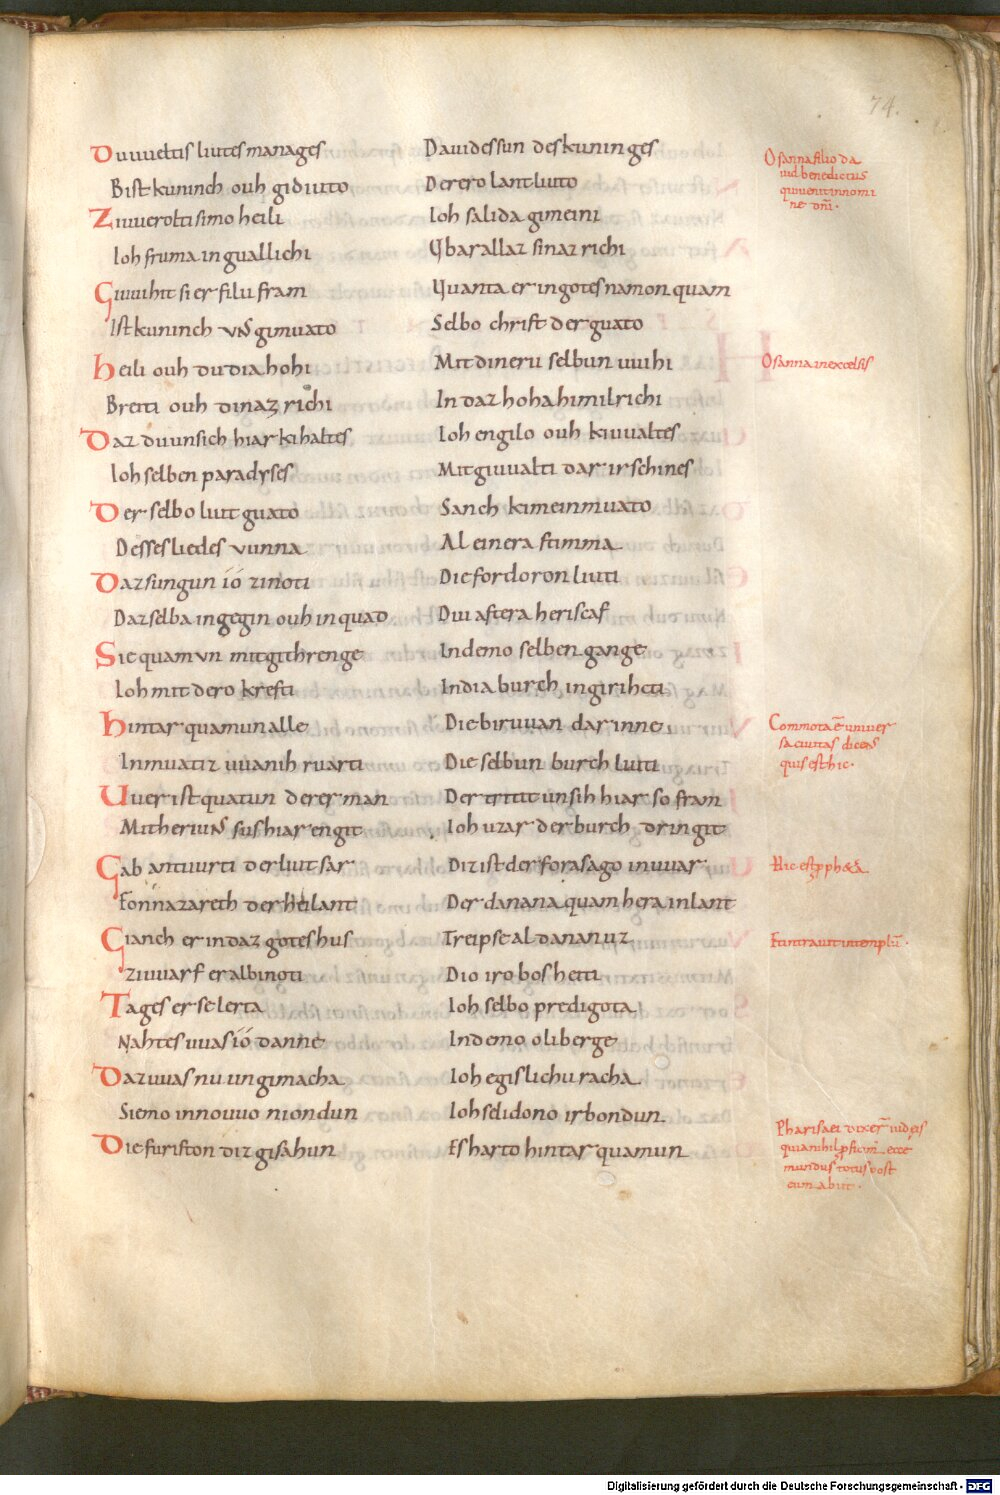 74.
Duuueltis liutes manages Dauides sun des kuninges
Bist kuninch ouh gidiuto Derero lantliuto
Ziuuerolti simo heili Ioh salida gimeini
Ioh fruma in guallichi Vbar allaz sinaz richi
Giuuihit si er filu fram Vuanta er in gotes namon quam
Ist kuninch uns gimuato Selbo christ der guato
Heili ouh du dia hohi Mit dineru selbun uuihi
Breiti ouh dinaz richi In daz hoha himilrichi
Daz du unsich hiar kihaltes Ioh engilo ouh kiuualtes
Ioh selben paradyses Mit giuualti dar irschines
Der selbo liut guato Sanch kimeinmuato
Desses liedes vunna Al einera stimma
Daz sungun ió zi noti Die fordoron liuti
Daz selba ingegin ouh inquad Diu aftera heriscaf
Sie quamun mit githrenge In demo selben gange
Ioh mit dero krefti In dia burch in girihti
Hintar quamun alle Die biruuan dar inne
In muatiz uuanih ruarti Die selbun burchliuti
Uuer ist quatun derer man Der tritit unsih hiar so fram
Mit heriu sus hiar engit Ioh uzar der burch dringit
Gab antuurti der liut sar Diz ist der forasago in uuar
Fonnazareth der heilant Der danana quam hera in lant
Gianch er in daz gotes hus Treip se al danan uz
Ziuuarf er al bi noti Dio iro bosheiti
Tages er se lerta Ioh selbo predigota
Nahtes uuas ió danne In demo oliberge
Daz uuas nu ungimacha Ioh egislichu racha
Siemo innouuo niondun Ioh selidono irbondun
Die furiston diz gisahun Es harto hintarquamun
Osanna filio da
uid benedictus
qui uenit in nomi
ne dni.
Osanna in excelsis
Commota ē uniuer
sa ciuitas dicens
quis est hic.
Hic est ppheta
Et intrauit in templū.
Pharisaei dixer̄ iudeis
quia nihil pficim ecce
mundus totus post
eum abiit.
Digitalisierung gefördert durch die Deutsche Forschungsgemeinschaft - DFG